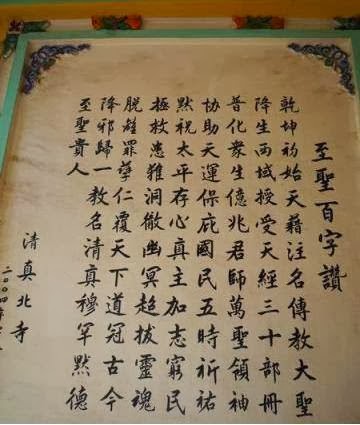 至聖百字讚
乾坤初始天藉注名傳教大聖
降生西域授受天經三十部冊
普化衆生億兆君師萬聖領袖
協助天運保庇國民五時祈祐
默祝太平存心真主加志窮民
極救患难洞徹幽冥超拔靈魂
脱離罪孽仁覆天下道冠古今
降邪歸一教名清真穆罕默德
至聖貴人
清真北寺
二〇〇四